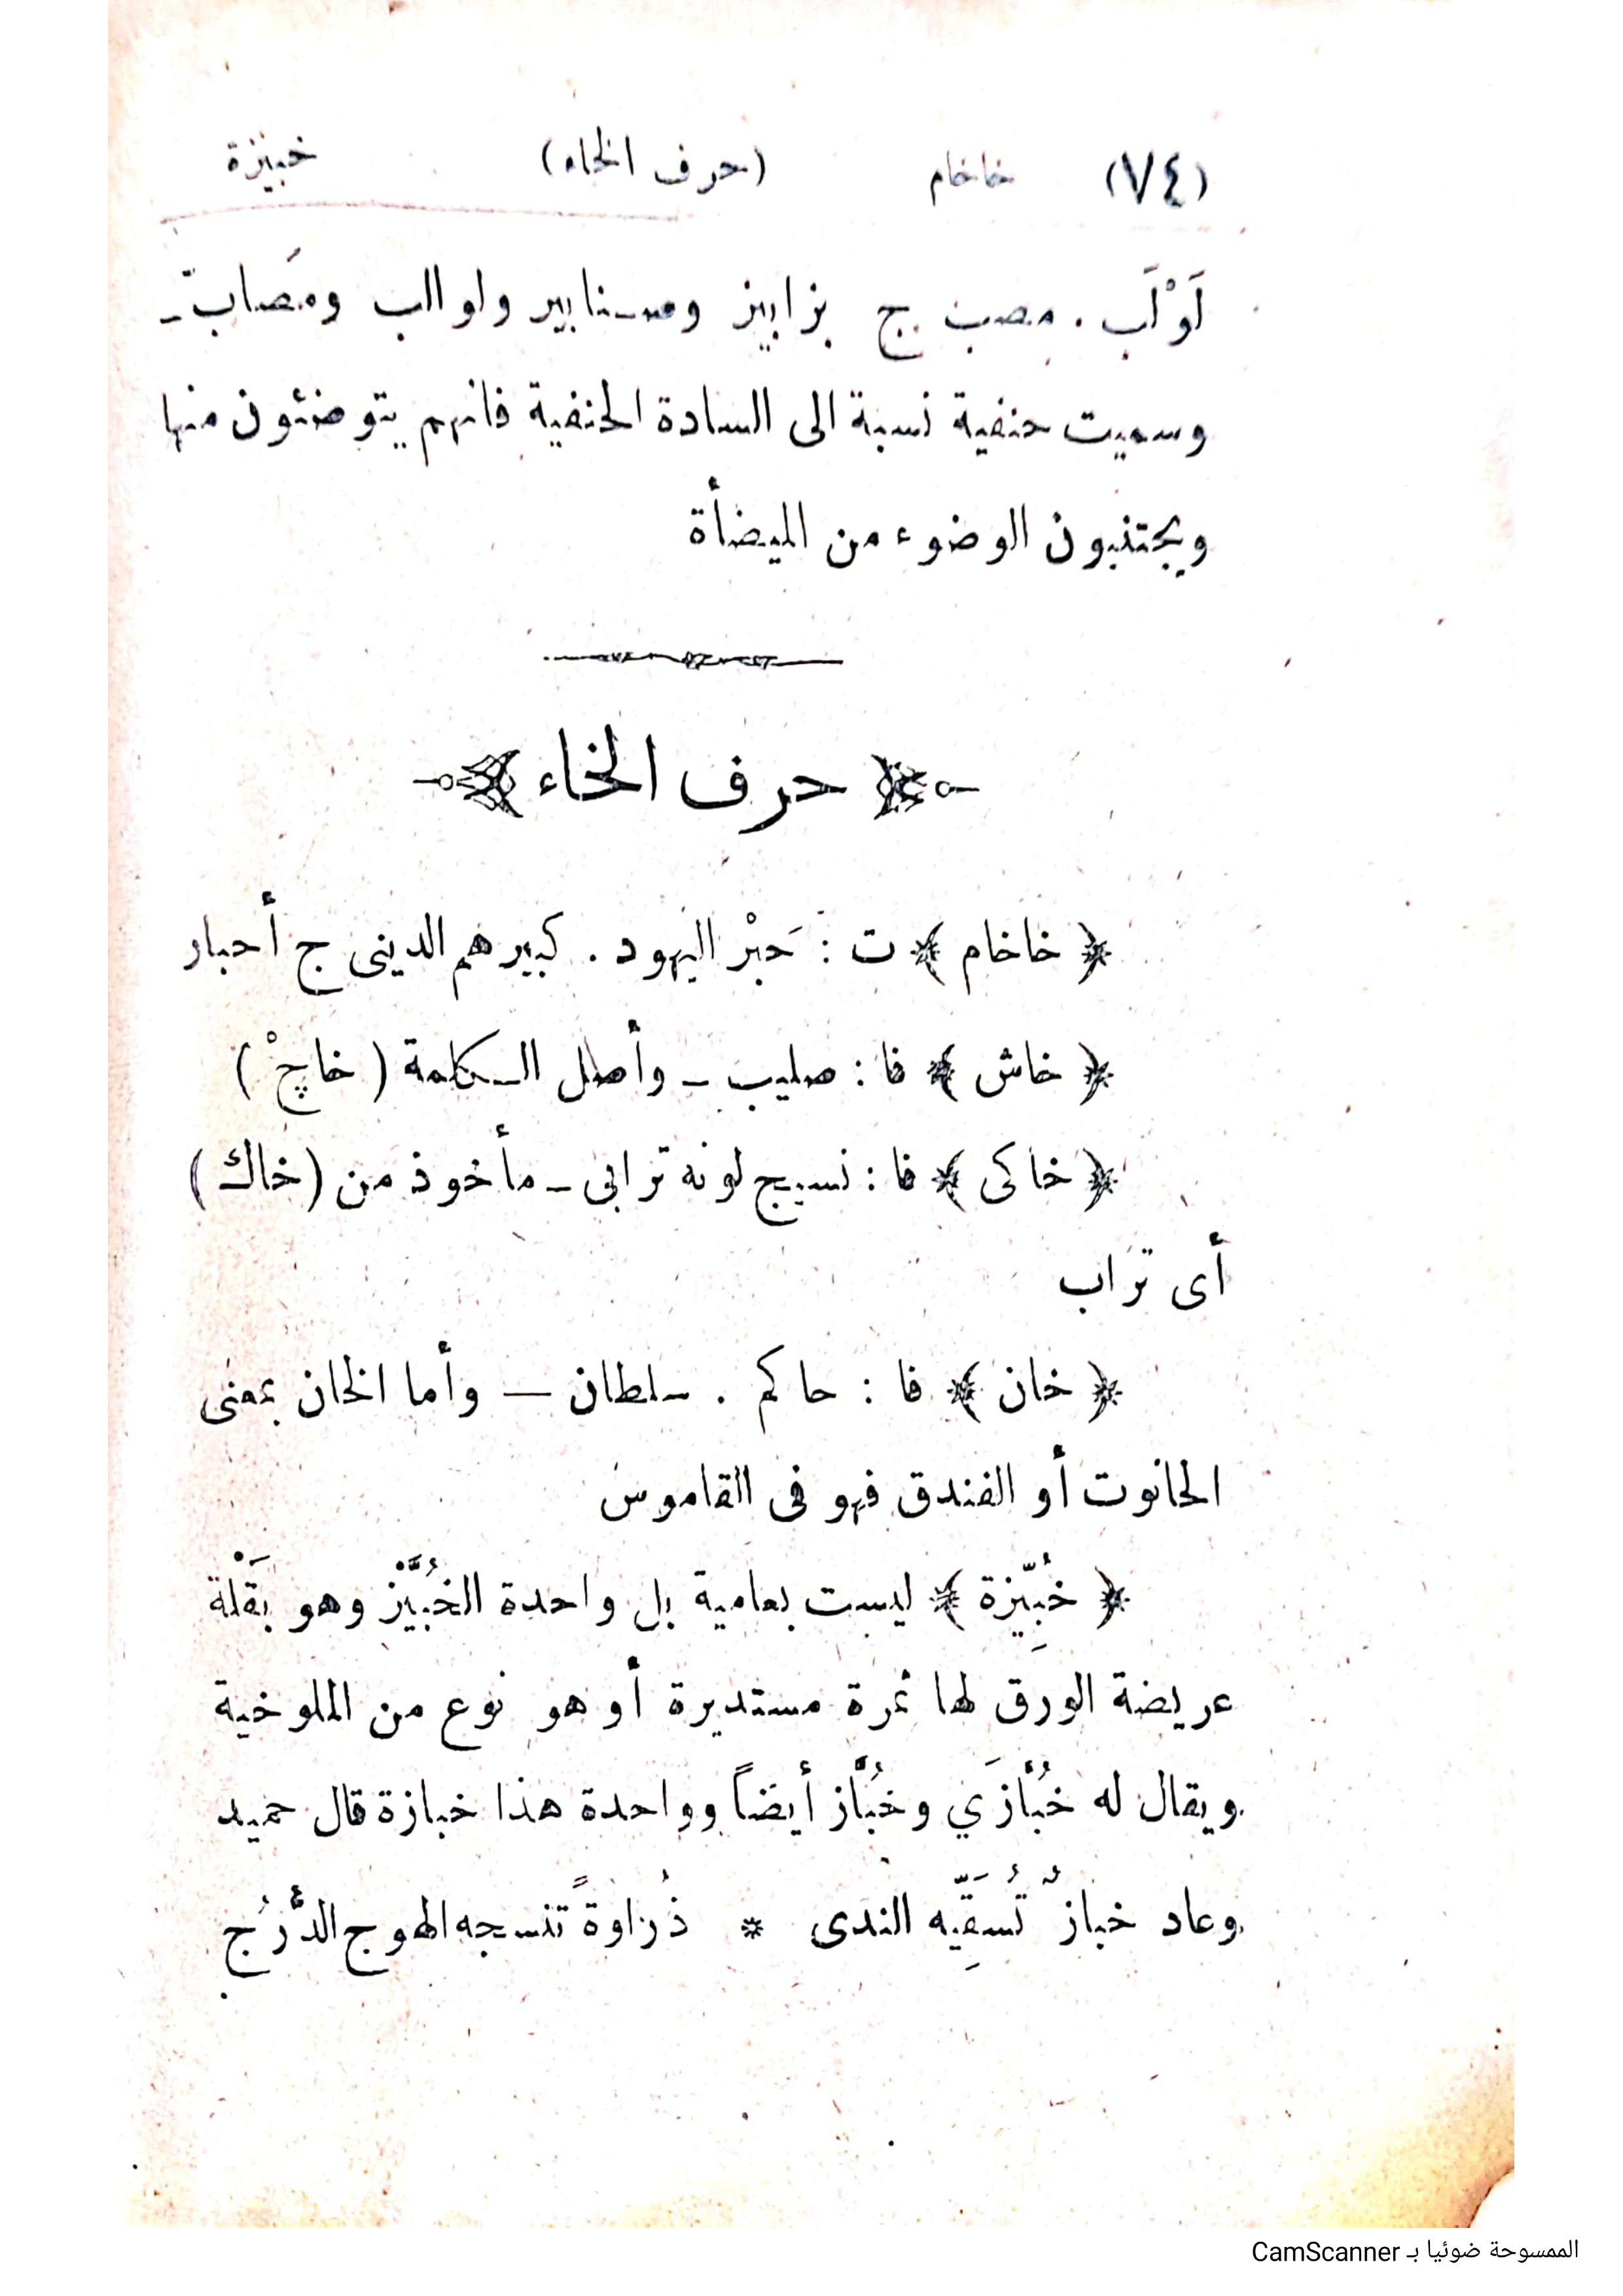 (٧٤) خاخام (حرف الخاء) خبيزة
لَوْلَب . مصب ج بزابيز وصنابير ولوالب ومَصابّ ـ
وسميت حنفية نسبة الى السادة الحنفية فانهم يتوضئون منها
ويجتنبون الوضوء من الميضأة
حرف الخاء
﴿ خاخام ﴾ ت : حَبْر اليهود . كبيرهم الدينى ج أحبار
﴿ خاش ﴾ فا : صليب ـ وأصل الكلمة ( خاچْ )
﴿ خاكى ﴾ فا : نسيج لونه ترابى ـ مأخوذ من ( خاك )
أى تراب
﴿ خان ﴾ فا : حاكم . سلطان — وأما الخان بمعنى
الحانوت أو الفندق فهو فى القاموس
﴿ خُبِّيزة ﴾ ليست بعامية بل واحدة الخُبَّيْز وهو بَقْلة
عريضة الورق لها ثمرة مستديرة أو هو نوع من الملوخية
ويقال له خُبَّازَي وخُبَّاز أيضاً وواحدة هذا خبازة قال حميد
وعاد خبازٌ تُسَقِّيه الندى * ذُراوةً تنسجه الهوج الدُّرُج
الممسوحة ضوئيا بـ CamScanner